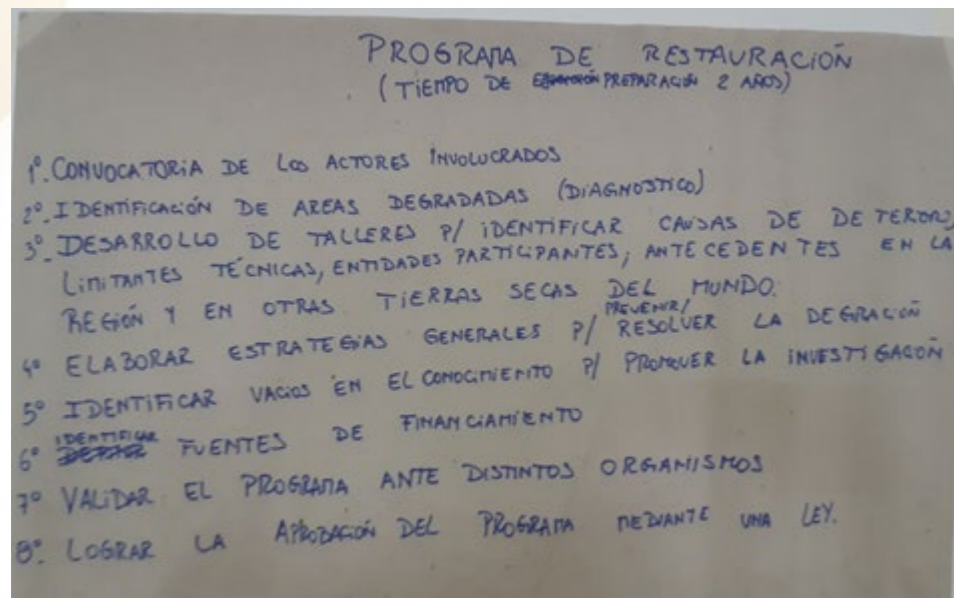 PROGRAMA DE RESTAURACIÓN
(TIEMPO DE PREPARACIÓN 2 AÑOS)
1º. CONVOCATORIA DE LOS ACTORES INVOLUCRADOS
2º. IDENTIFICACIÓN DE AREAS DEGRADADAS (DIAGNOSTICO)
3º. DESARROLLO DE TALLERES P/ IDENTIFICAR CAUSAS DE DETERORO,
LIMITANTES TÉCNICAS, ENTIDADES PARTICIPANTES, ANTECEDENTES EN LA
REGIÓN Y EN OTRAS TIERRAS SECAS DEL MUNDO.
4º ELABORAR ESTRATEGIAS GENERALES P/ PREVENIR/ RESOLVER LA DEGRACIÓN
5º IDENTIFICAR VACIOS EN EL CONOCIMIENTO P/ PROMOVER LA INVESTIGACIÓN
6º IDENTIFICAR FUENTES DE FINANCIAMIENTO
7º VALIDAR EL PROGRAMA ANTE DISTINTOS ORGANISMOS
8º. LOGRAR LA APROBACIÓN DEL PROGRAMA MEDIANTE UNA LEY.